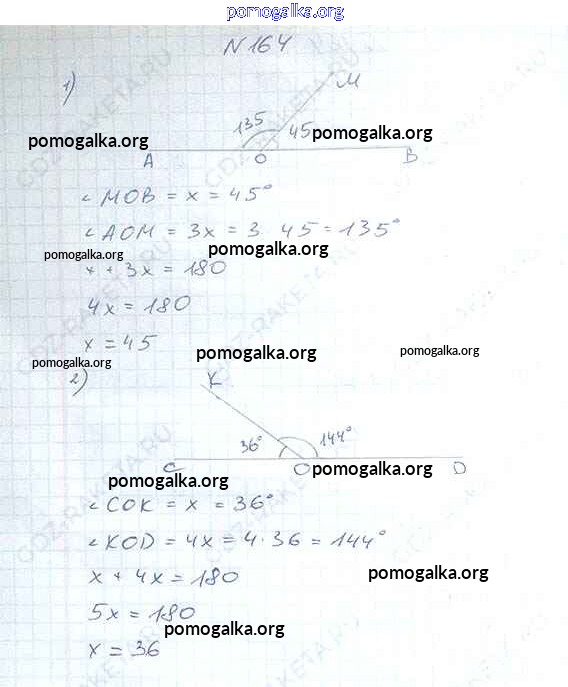 pomogalka.org
N 164
1)
M
135
45
pomogalka.org
pomogalka.org
A
O
B
∠MOB = x = 45°
∠AOM = 3x = 3 · 45 = 135°
pomogalka.org
pomogalka.org
x + 3x = 180
4x = 180
x = 45
pomogalka.org
pomogalka.org
pomogalka.org
2)
K
36°
144°
C
O
D
pomogalka.org
pomogalka.org
∠COK = x = 36°
∠KOD = 4x = 4 · 36 = 144°
x + 4x = 180
pomogalka.org
5x = 180
pomogalka.org
x = 36
GDZ-RAKETA.RU